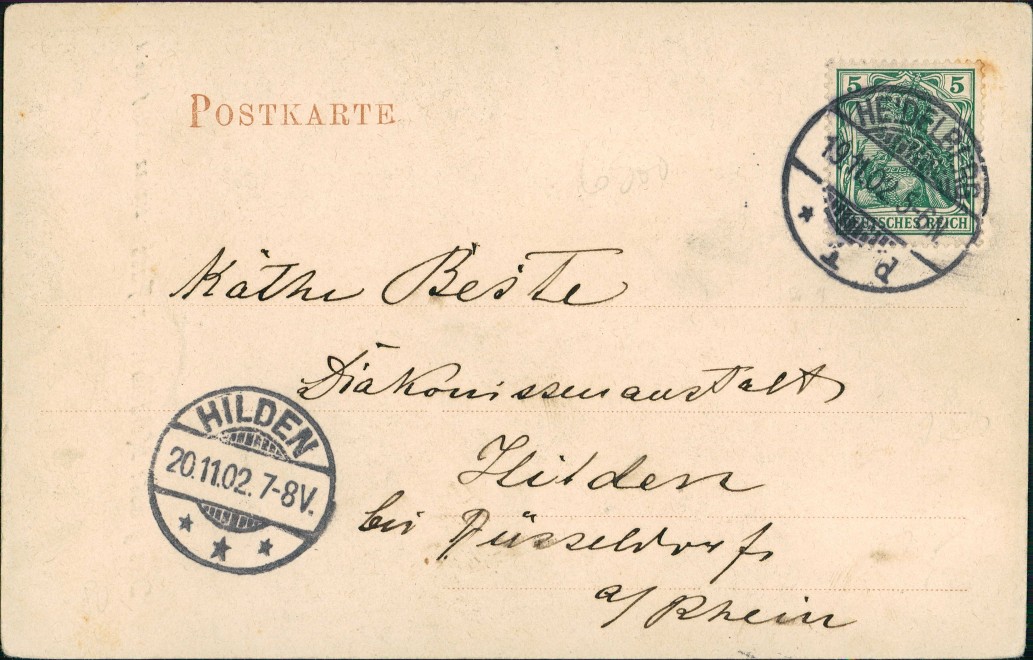 POSTKARTE
5 5
HEIDELBERG
19.11.02. 5-6N
DEUTSCHES REICH
P T
Käthe Beste
Diäkonissenanstalt
HILDEN
20.11.02. 7-8V.
Hilden
bei Düsseldorf
a/ Rhein